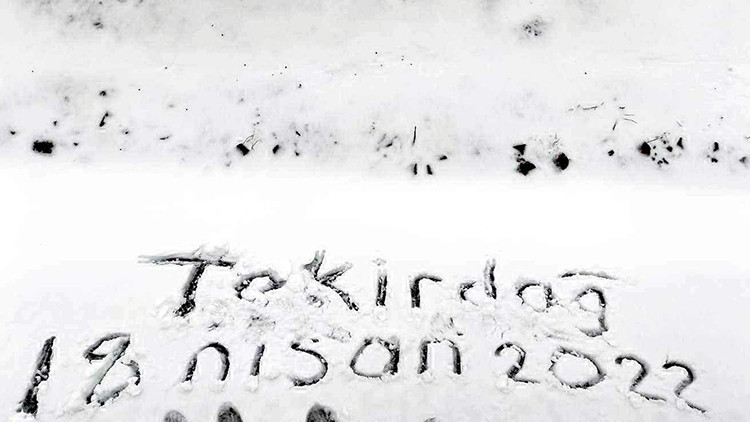 Tekirdağ
18 nisan 2022